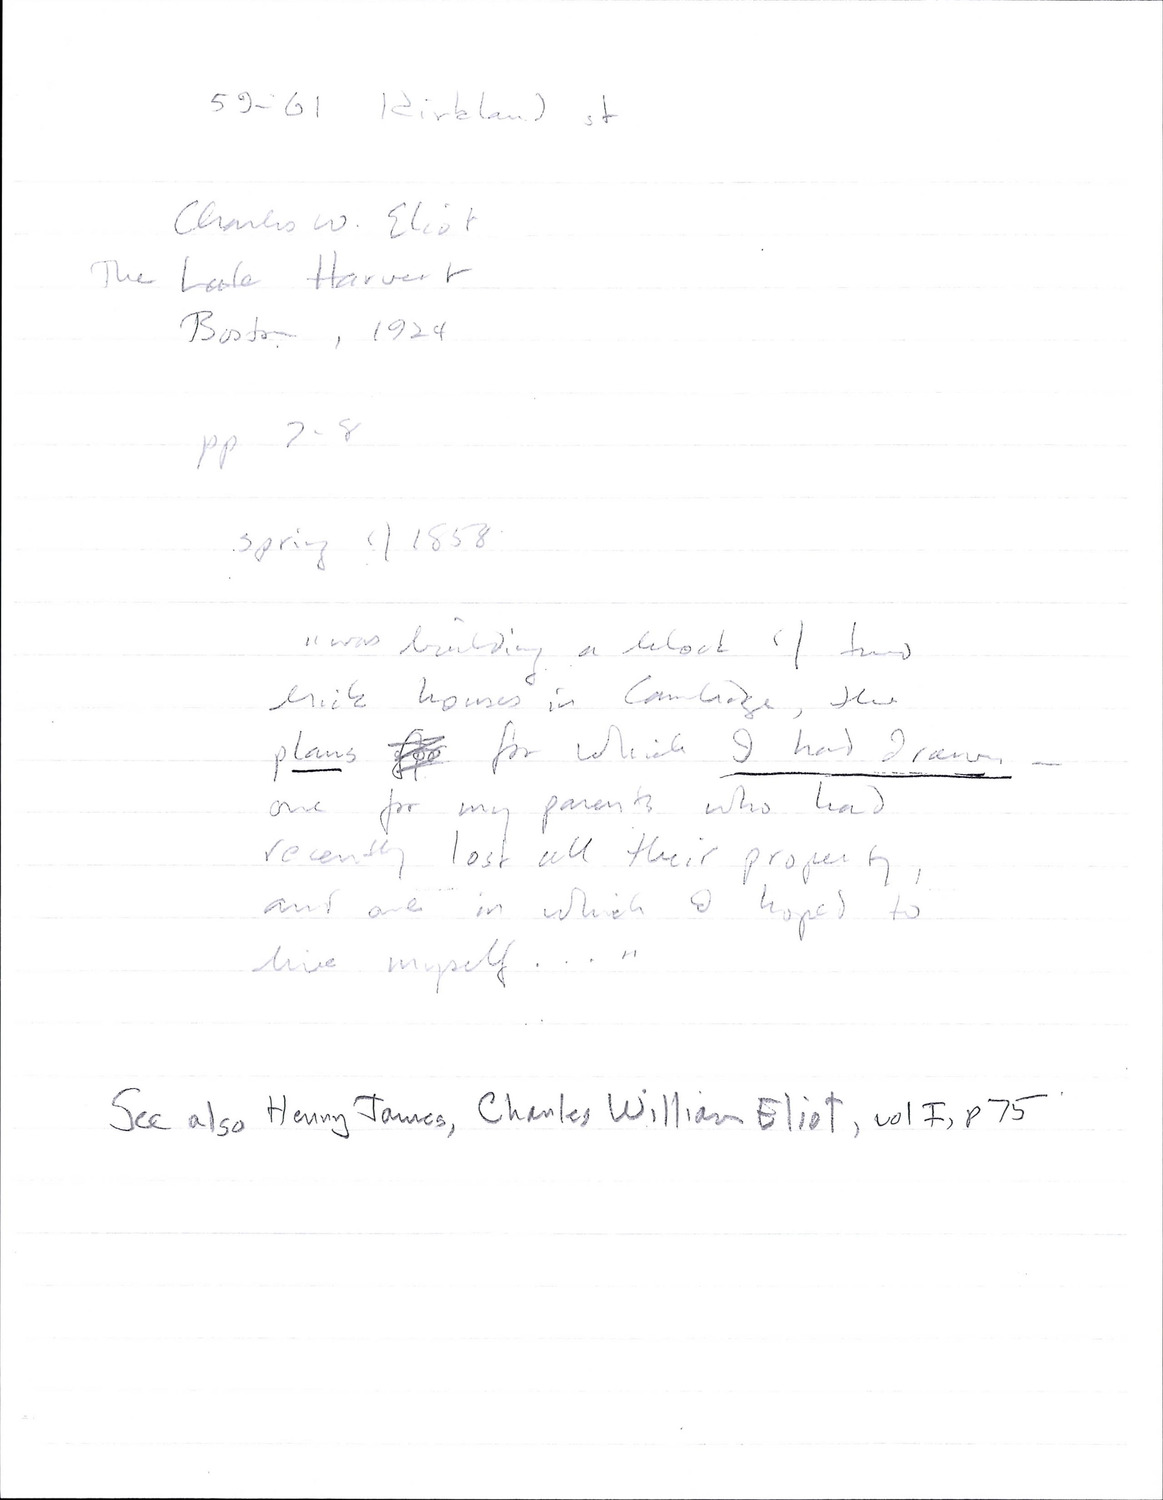 59-61 Kirkland st
Charles W. Eliot
The Late Harvest
Boston, 1924
pp 7-8
spring of 1858
"was building a block of two
brick houses in Cambridge, the
plans for which I had drawn —
one for my parents who had
recently lost all their property,
and one in which I hoped to
live myself . . . "
See also Henry James, Charles William Eliot, vol I, p 75